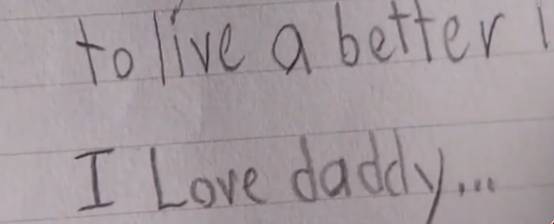 to live a better
I Love daddy...